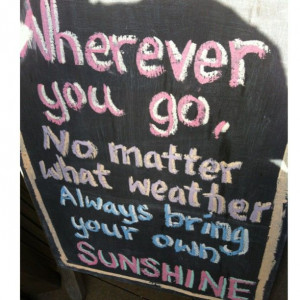 Wherever
you go,
No matter
what weather
Always bring
your own
SUNSHINE